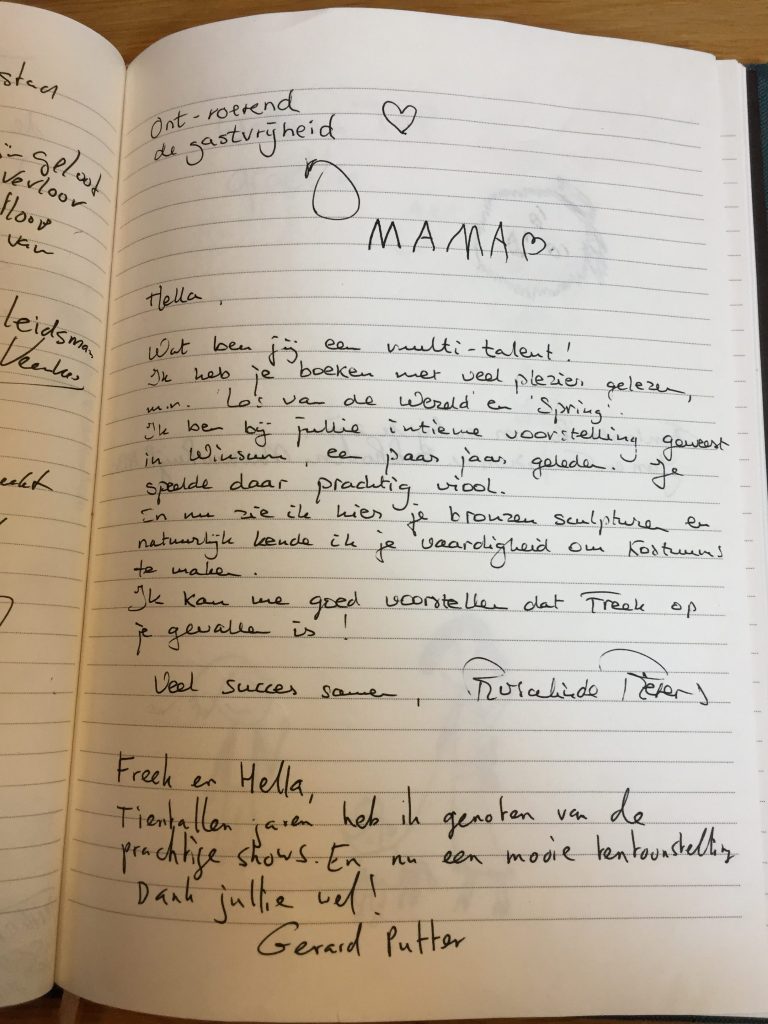 stad
in geloof
verloor
floor
van
leidsman
Ont-roerend
de gastvrijheid
O
MAMA
Hella,
Wat ben jij een multi-talent!
Ik heb je boeken met veel plezier gelezen,
m.n. 'Los van de Wereld' en 'Spring'.
Ik ben bij jullie intieme voorstelling geweest
in Winsum, een paar jaar geleden. Je
speelde daar prachtig viool.
En nu zie ik hier je bronzen sculpturen en
natuurlijk kende ik je vaardigheid om kostuums
te maken.
Ik kan me goed voorstellen dat Freek op
je gevallen is!
Veel succes samen, Rosalinde
Freek en Hella,
Tientallen jaren heb ik genoten van de
prachtige shows. En nu een mooie tentoonstelling
Dank jullie wel!
Gerard Putter